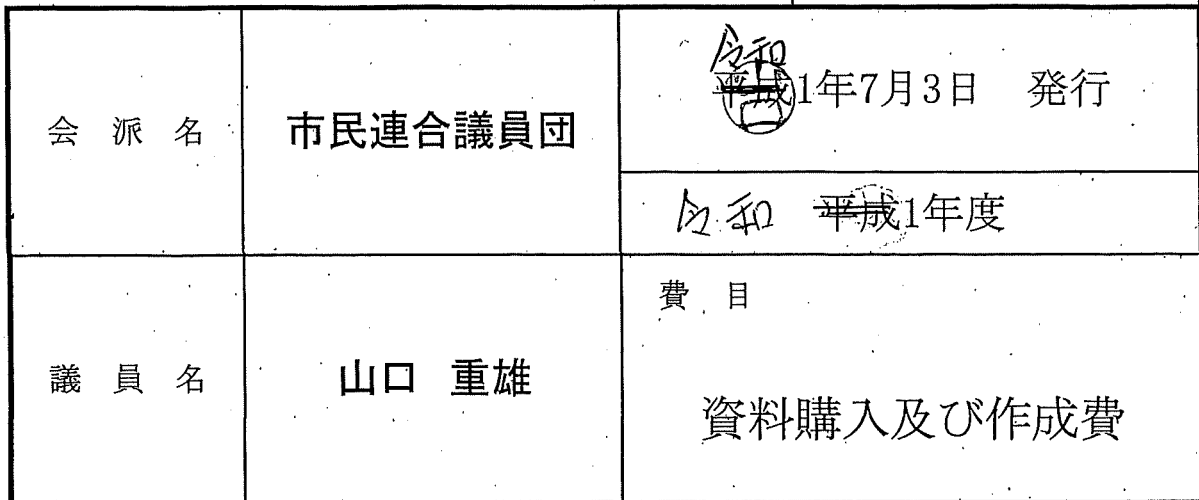 会派名
市民連合議員団
令和
平成1年7月3日 発行
令和 平成1年度
議員名
山口 重雄
費目
資料購入及び作成費